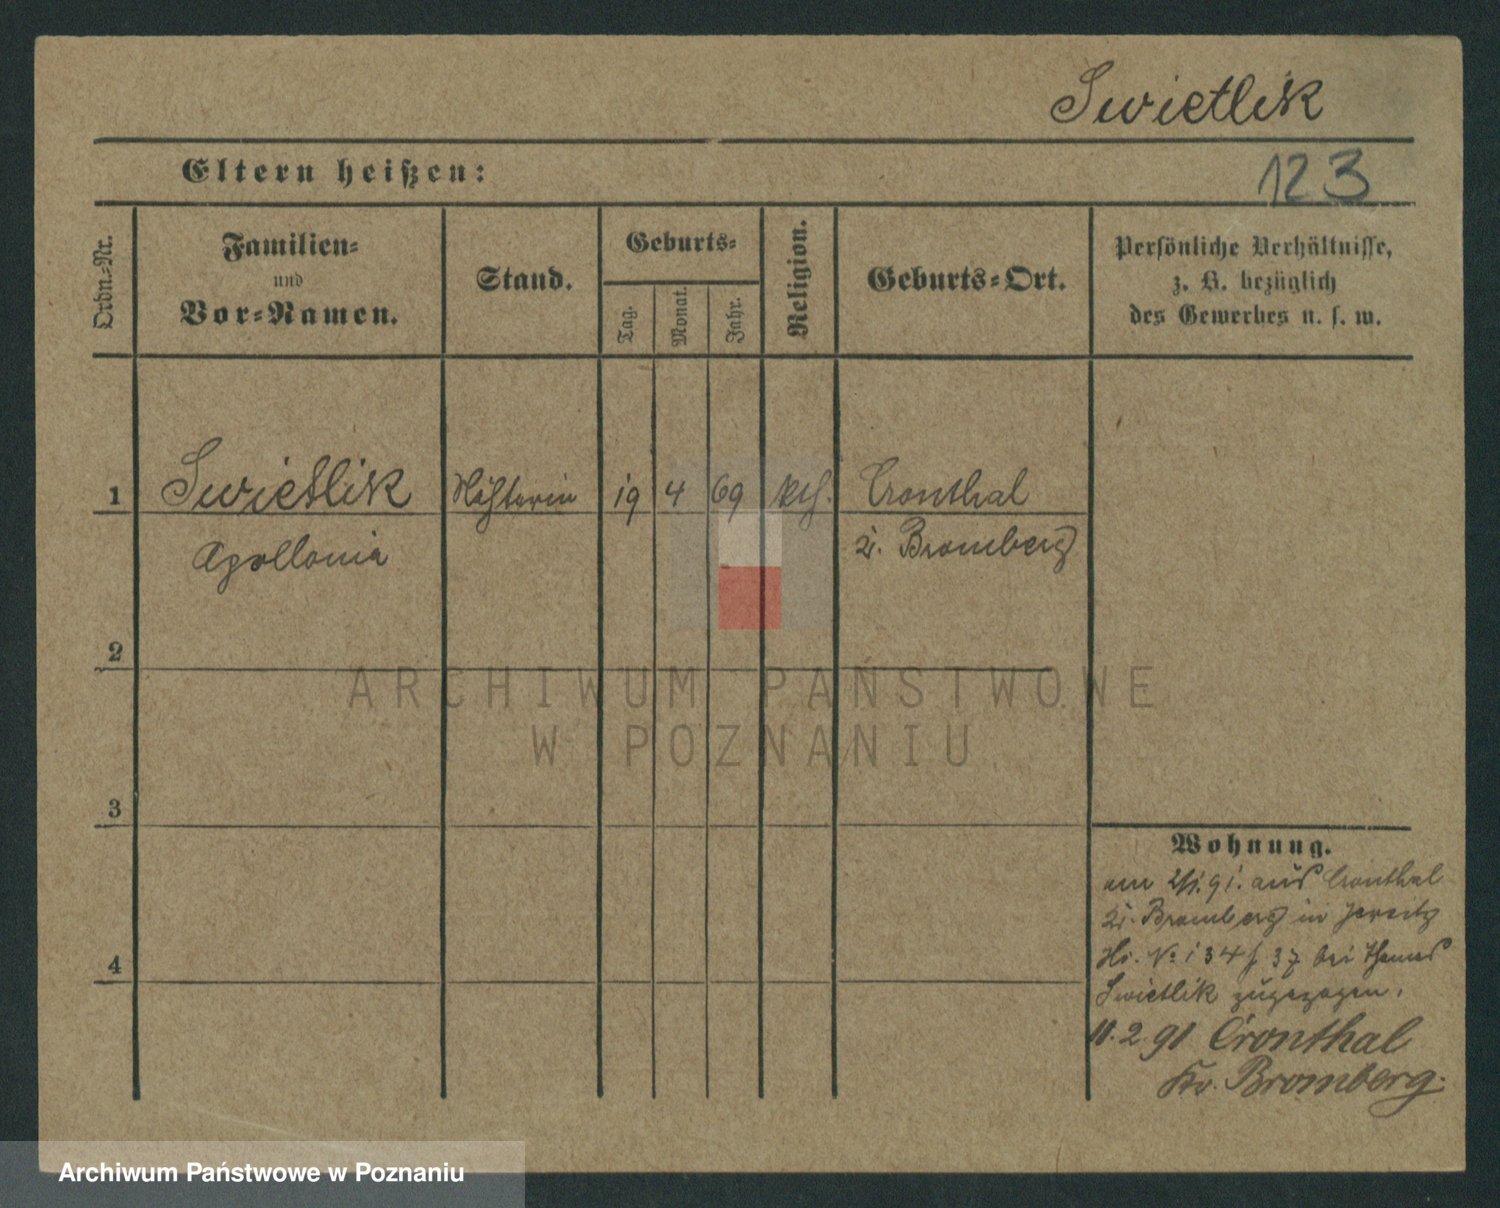 Swietlik
Eltern heißen:
123
Ordn.-Nr.
Familien-
und
Vor-Namen.
Stand.
Geburts-
Tag.
Monat.
Jahr.
Religion.
Geburts-Ort.
Persönliche Verhältnisse,
z. B. bezüglich
des Gewerbes u. s. w.
1
Swietlik
Nähterin
19
4
69
kth.
Cronthal
Apollonia
Kr. Bromberg
2
ARCHIWUM PAŃSTWOWE
W POZNANIU
3
Wohnung.
am 2/1.91. aus Cronthal
Kr. Bromberg in Jersitz
No 134 37 bei Thomas
4
Swietlik zugezogen.
11.2.91 Cronthal
Kr. Bromberg.
Archiwum Państwowe w Poznaniu